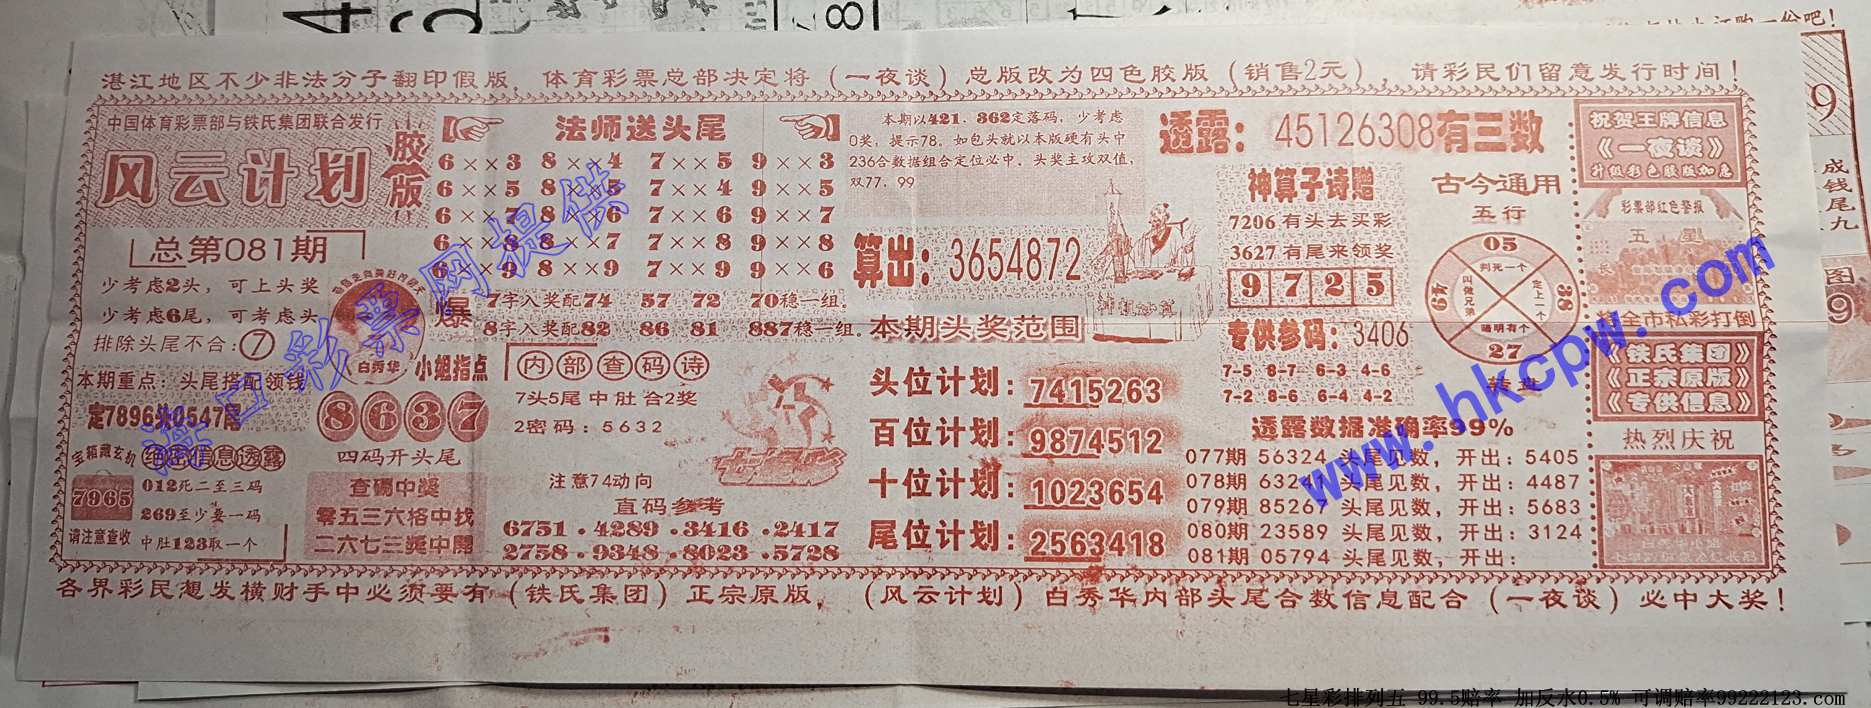 湛江地区不少非法分子翻印假版，体育彩票总部决定将（一夜谈）总版改为四色胶版（销售2元），请彩民们留意发行时间！
中国体育彩票部与铁氏集团联合发行
风云计划
胶版
总第081期
少考虑2头，可上头奖
少考虑6尾，可考虑头
排除头尾不合：⑦
本期重点：头尾搭配领钱
定7896头0547尾
宝箱藏玄机
绝密信息透露
7965
012死二至三码
269至少要一码
请注意查收
中肚123取一个
法师送头尾
6××3 8××4 7××5 9××3
6××5 8××5 7××4 9××5
6××7 8××6 7××6 9××7
6××8 8××7 7××8 9××8
6××9 8××9 7××9 9××6
爆
7字入奖配74 57 72 70稳一组.
8字入奖配82 86 81 887稳一组.
白秀华
小姐指点
8637
四码开头尾
查码中奖
零五三六搭中找
二六七三奖中开
内部查码诗
7头5尾中肚合2奖
2密码：5632
注意74动向
直码参考
6751.4289.3416.2417
2758.9348.8023.5728
本期以421、362定落码，少考虑
0奖，提示78。如包头就以本版硬有头中
236合数据组合定位必中。头奖主攻双值，
双77、99
算出：3654872
本期头奖范围
头位计划：7415263
百位计划：9874512
十位计划：1023654
尾位计划：2563418
透露：45126308有三数
神算子诗赠
7206有头去买彩
3627有尾来领奖
9725
专供参码：3406
7-5 8-7 6-3 4-6
7-2 8-6 6-4 4-2
古今通用
五行
05
判死一个
叫做兄弟
定上一个
49
38
27
转盘
透露数据准确率99%
077期 56324 头尾见数，开出：5405
078期 63241 头尾见数，开出：4487
079期 85267 头尾见数，开出：5683
080期 23589 头尾见数，开出：3124
081期 05794 头尾见数，开出：
祝贺王牌信息
《一夜谈》
升级彩色胶版加急
彩票部红色警报
五星
将全市私彩打倒
《铁氏集团》
《正宗原版》
《专供信息》
热烈庆祝
各界彩民想发横财手中必须要有（铁氏集团）正宗原版，（风云计划）白秀华内部头尾合数信息配合（一夜谈）必中大奖！
海口彩票网提供
www.hkcpw.com
七星彩排列五 99.5赔率 加反水0.5% 可调赔率99222123.com